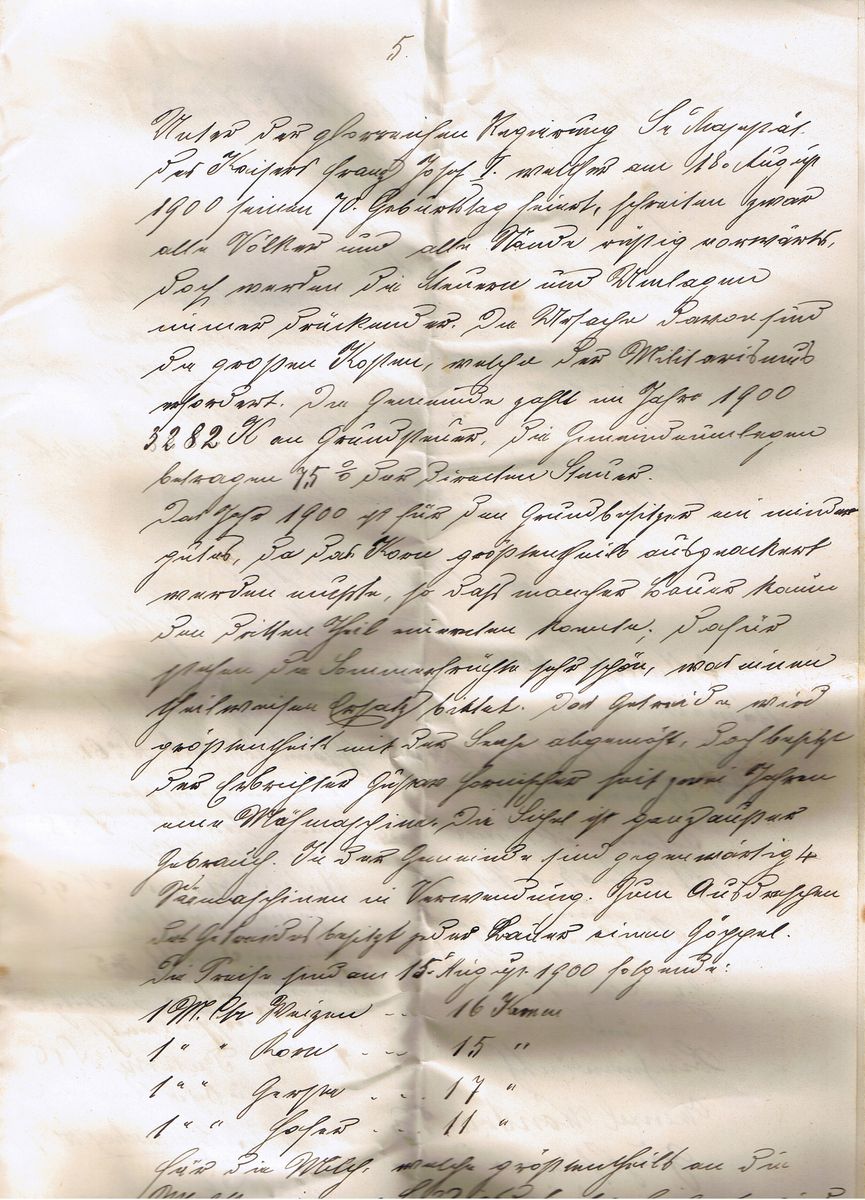 5.
Unter der glorreichen Regierung Sr Majestät
des Kaisers Franz Josef I. welcher am 18. August
1900 seinen 70. Geburtstag feiert, schreiten zwar
alle Völker und alle Stände rüstig vorwärts,
doch werden die Steuern und Umlagen
immer drückender. Die Ursache davon sind
die großen Kosten, welche der Militarismus
erfordert. Die Gemeinde zahlt im Jahre 1900
3282 K an Grundsteuer, die Gemeindeumlagen
betragen 75 % der directen Steuer.
Das Jahr 1900 ist für den Grundbesitzer ein minder
gutes, da das Korn größtentheils ausgeackert
werden mußte, so daß mancher Bauer kaum
den dritten Theil einernten konnte, dafür
stehen die Sommerfrüchte sehr schön, was einen
theilweisen Ersatz bittet. Das Getreide wird
größtentheils mit der Sense abgemäht, doch besitzt
der Erbrichter Gustav Hornischer seit zwei Jahren
eine Mähmaschine. Die Sichel ist ganz außer
Gebrauch. In der Gemeinde sind gegenwärtig 4
Säemaschinen in Verwendung. Zum Ausdreschen
des Getreides besitzt jeder Bauer einen Göppel.
Die Preise sind am 15. August 1900 folgende:
1 M. Ctr Weizen - - 16 Kronen
1 " " Korn - - - 15 "
1 " " Gerste . . . 17 "
1 " " Hafer - - 11 "
Für die Milch, welche größtentheils an die